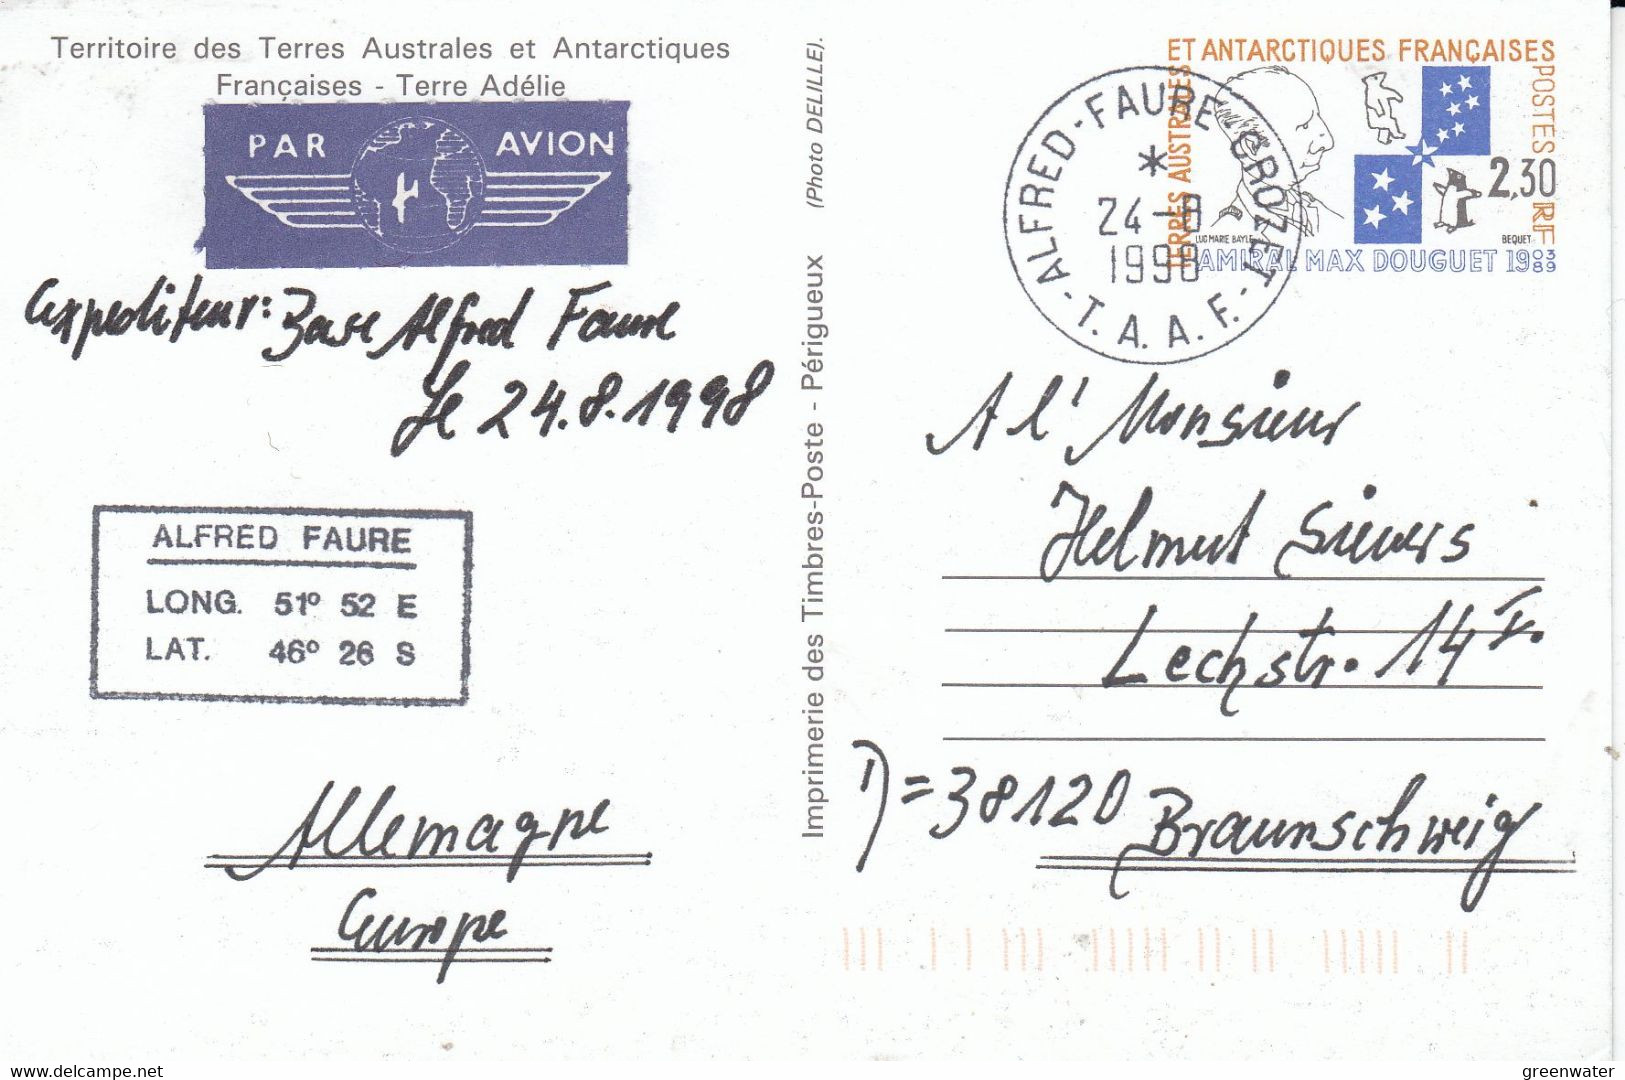 Territoire des Terres Australes et Antarctiques
Françaises - Terre Adélie
PAR AVION
expediteur: Base Alfred Faure
le 24.8.1998
ALFRED FAURE
LONG. 51° 52 E
LAT. 46° 26 S
Allemagne
Europe
Imprimerie des Timbres-Poste - Périgueux (Photo DELILLE).
TERRES AUSTRALES
ET ANTARCTIQUES FRANÇAISES
POSTES
2,30
RF
LUC MARIE BAYLE
BEQUET
AMIRAL MAX DOUGUET 1903 89
ALFRED-FAURE-CROZET
*
24-8
1998
-T.A.A.F.-
A l' Monsieur
Helmut Sievers
Lechstr. 14 I.
D=38120 Braunschweig
delcampe.net
greenwater